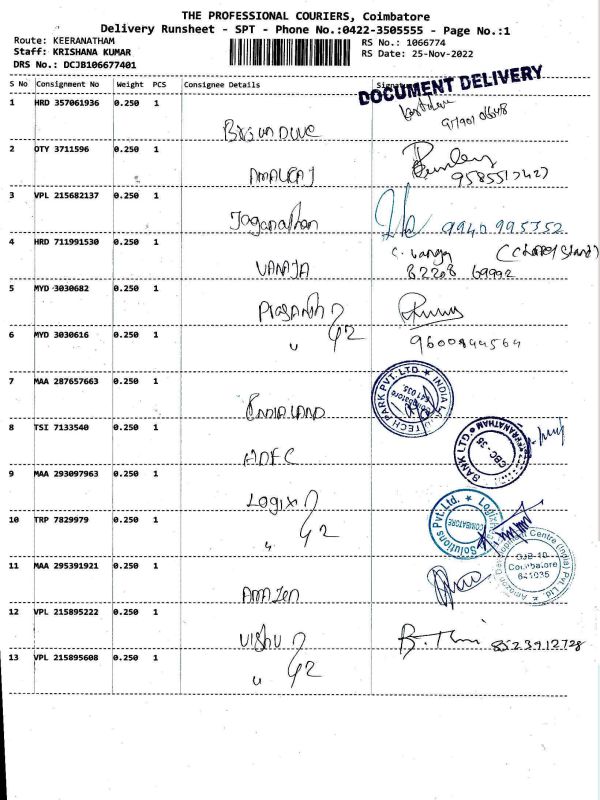 THE PROFESSIONAL COURIERS, Coimbatore
Delivery Runsheet - SPT - Phone No.:0422-3505555 - Page No.:1
Route: KEERANATHAM
Staff: KRISHANA KUMAR
DRS No.: DCJB106677401
RS No.: 1066774
RS Date: 25-Nov-2022
S No Consignment No Weight PCS Consignee Details Signature
DOCUMENT DELIVERY
1 HRD 357061936 0.250 1
2 OTY 3711596 0.250 1
AMALRAJ
3 VPL 215682137 0.250 1
Jaganathan 9940995352
4 HRD 711991530 0.250 1
VANAJA 82208 69992
5 MYD 3030682 0.250 1
Prasanth
6 MYD 3030616 0.250 1
" 9600844564
7 MAA 287657663 0.250 1
INDIALAND
TECH PARK PVT. LTD. ★ INDIA LAND
Coimbatore 641 035.
8 TSI 7133540 0.250 1
HDFC
BANK LTD. KEERANATHAM
CBC - 35
9 MAA 293097963 0.250 1
Logix
Solutions Pvt. Ltd. ★ Logix
COIMBATORE
10 TRP 7829979 0.250 1
"
11 MAA 295391921 0.250 1
Amazon
Amazon Development Centre (India) Pvt. Ltd.
CJB-10
Coimbatore
641035
12 VPL 215895222 0.250 1
Vishu 8523912728
13 VPL 215895608 0.250 1
"